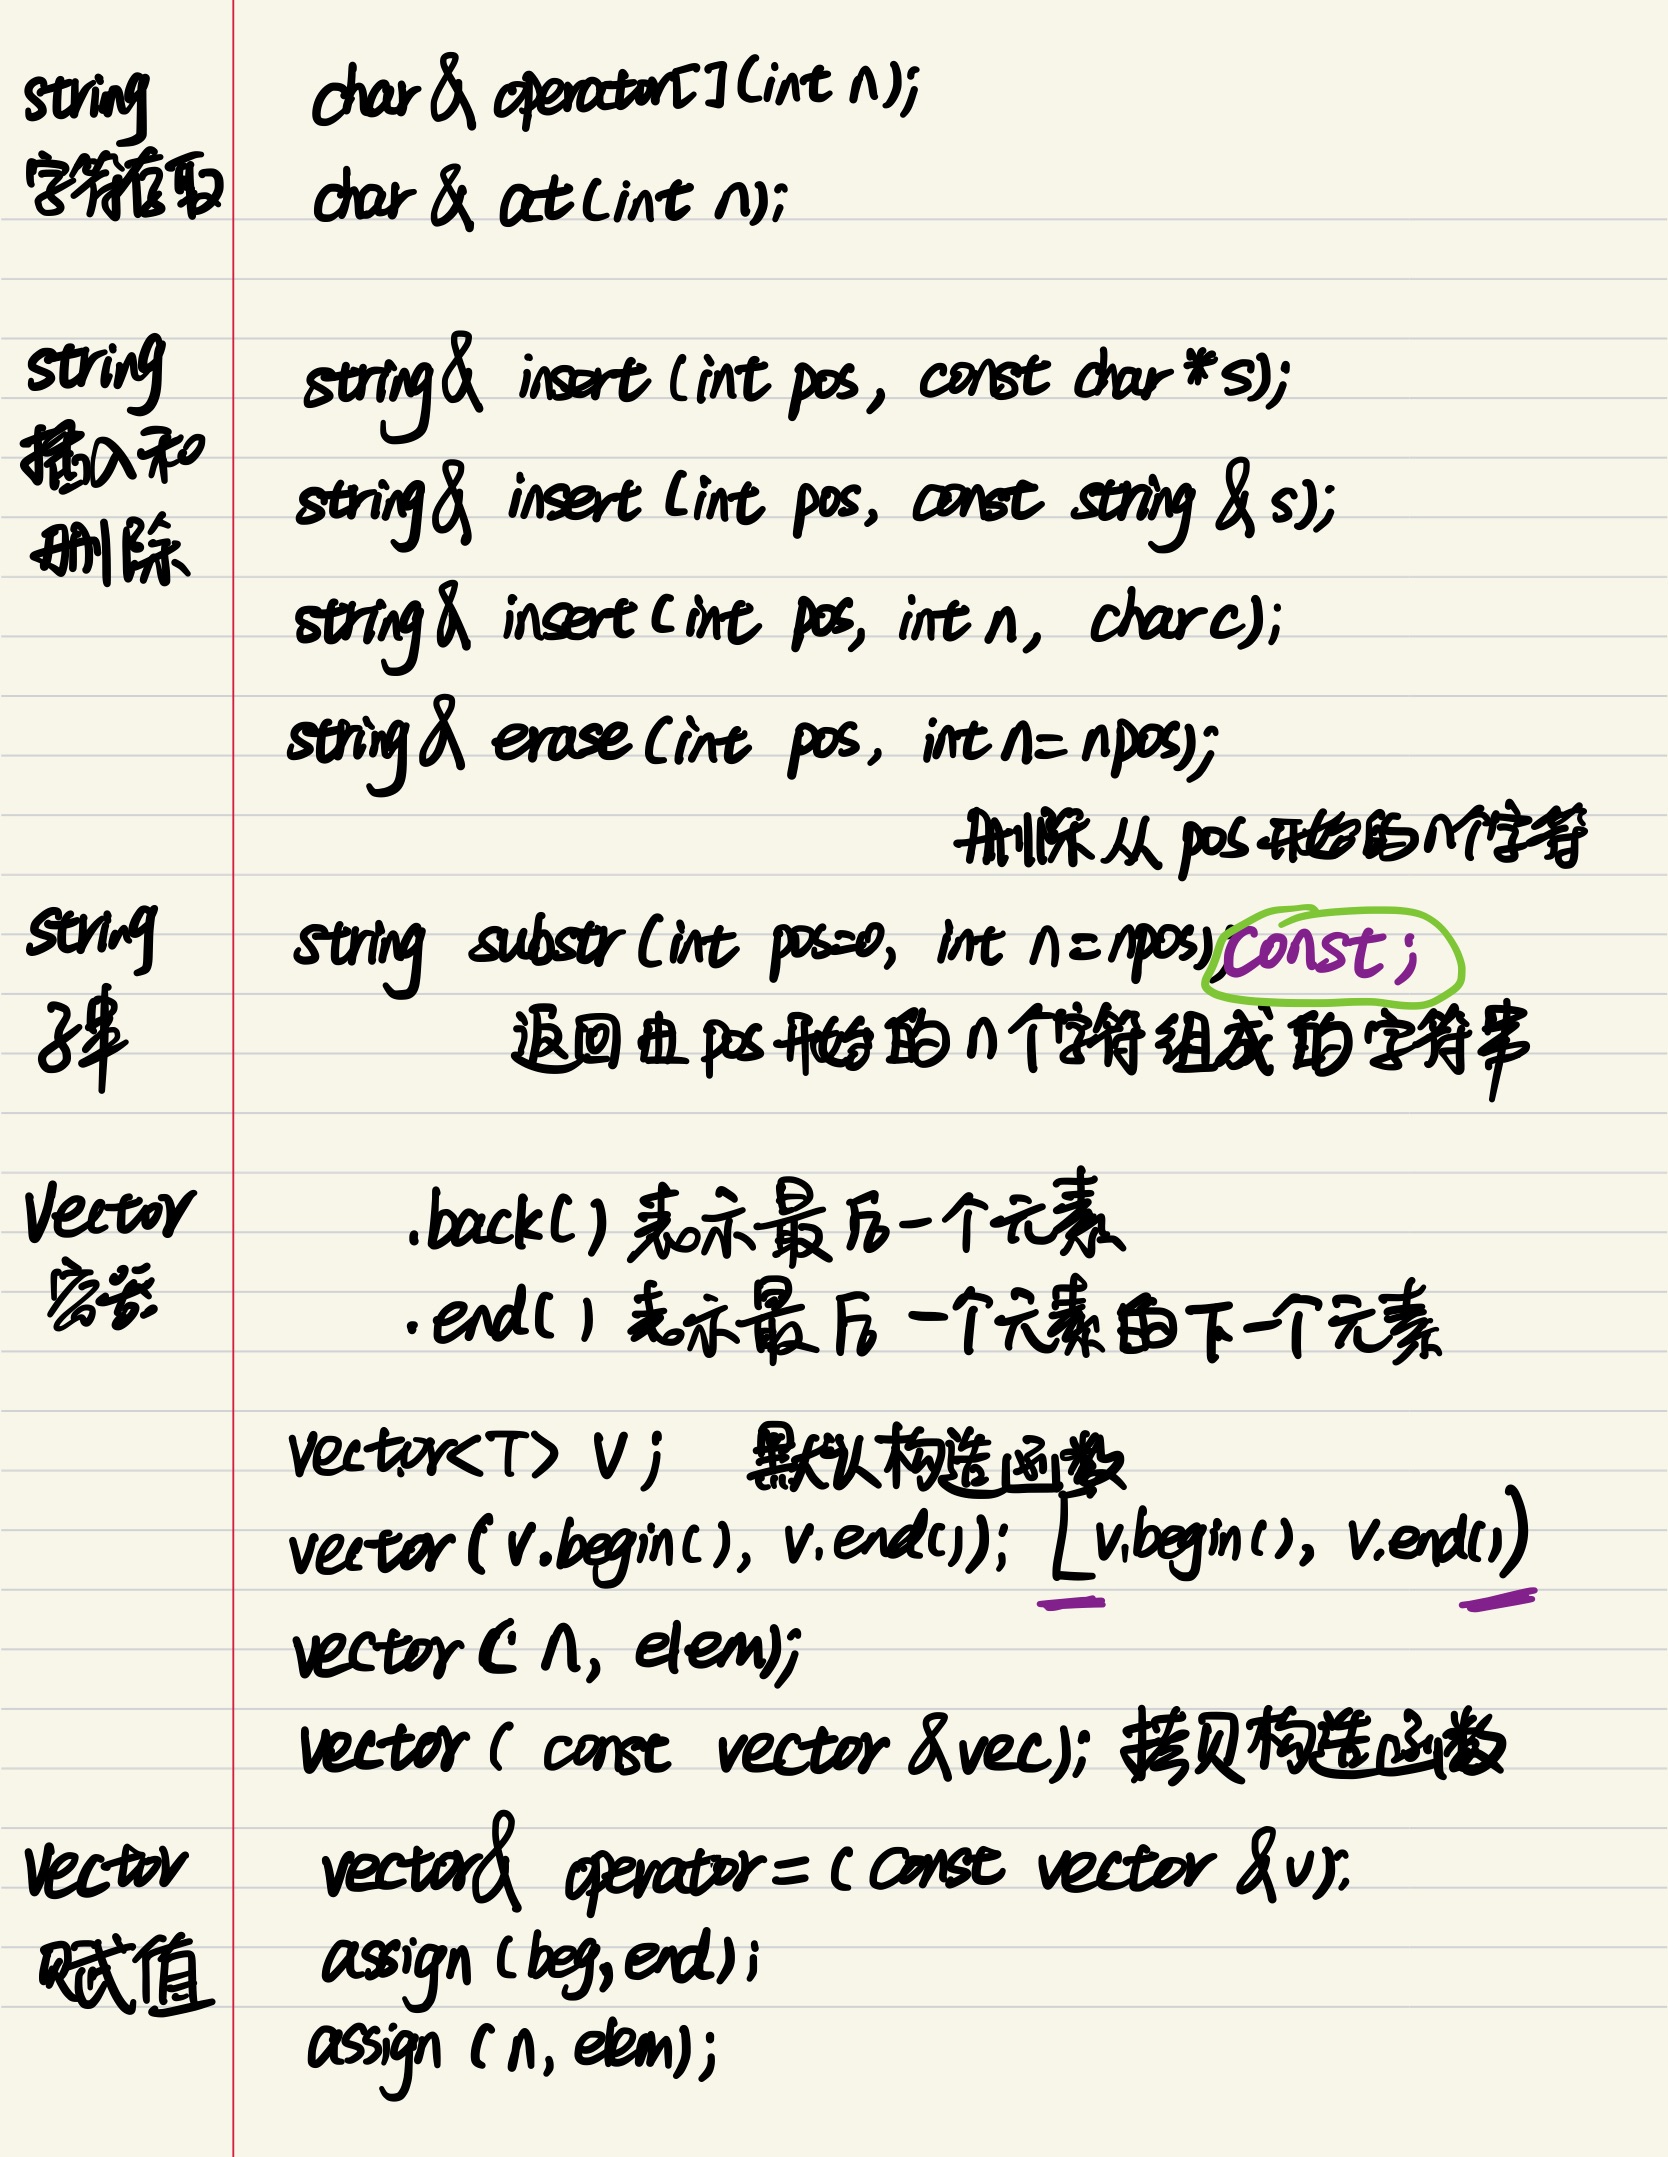 string
字符存取
char & operator[](int n);
char & at(int n);
string
插入和
删除
string& insert(int pos, const char *s);
string& insert(int pos, const string & s);
string& insert(int pos, int n, char c);
string& erase(int pos, int n=npos);
删除从pos开始的n个字符
string
子串
string substr(int pos=0, int n=npos) const;
返回由pos开始的n个字符组成的字符串
Vector
容器
.back() 表示最后一个元素
.end() 表示最后一个元素的下一个元素
vector<T> v; 默认构造函数
vector(v.begin(), v.end()); [v.begin(), v.end())
vector(n, elem);
vector(const vector &vec); 拷贝构造函数
vector
赋值
vector& operator=(const vector &v);
assign(beg,end);
assign(n, elem);